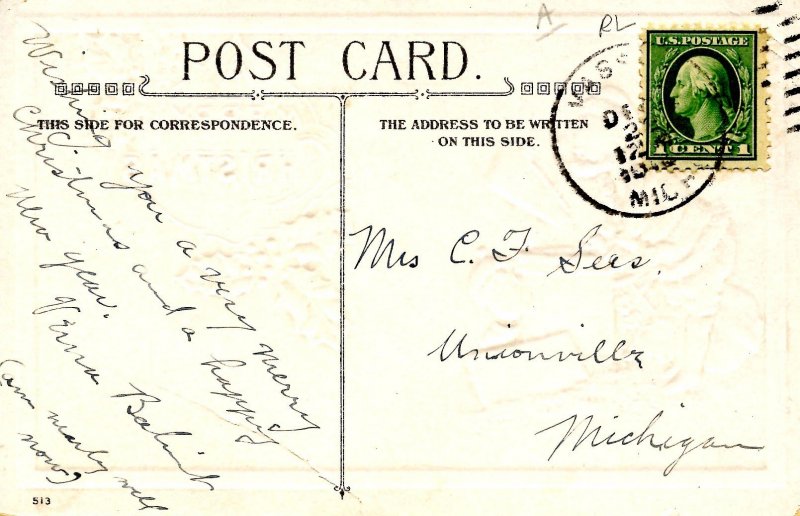 A RL
POST CARD.
THIS SIDE FOR CORRESPONDENCE.
THE ADDRESS TO BE WRITTEN
ON THIS SIDE.
U.S. POSTAGE
1 CENT 1
VASS
DE
MICH
Wishing you a very merry
Christmas and a happy
New year.
Verna
(am nearly well
now)
Mrs C. F. Sees.
Unionville
Michigan
513